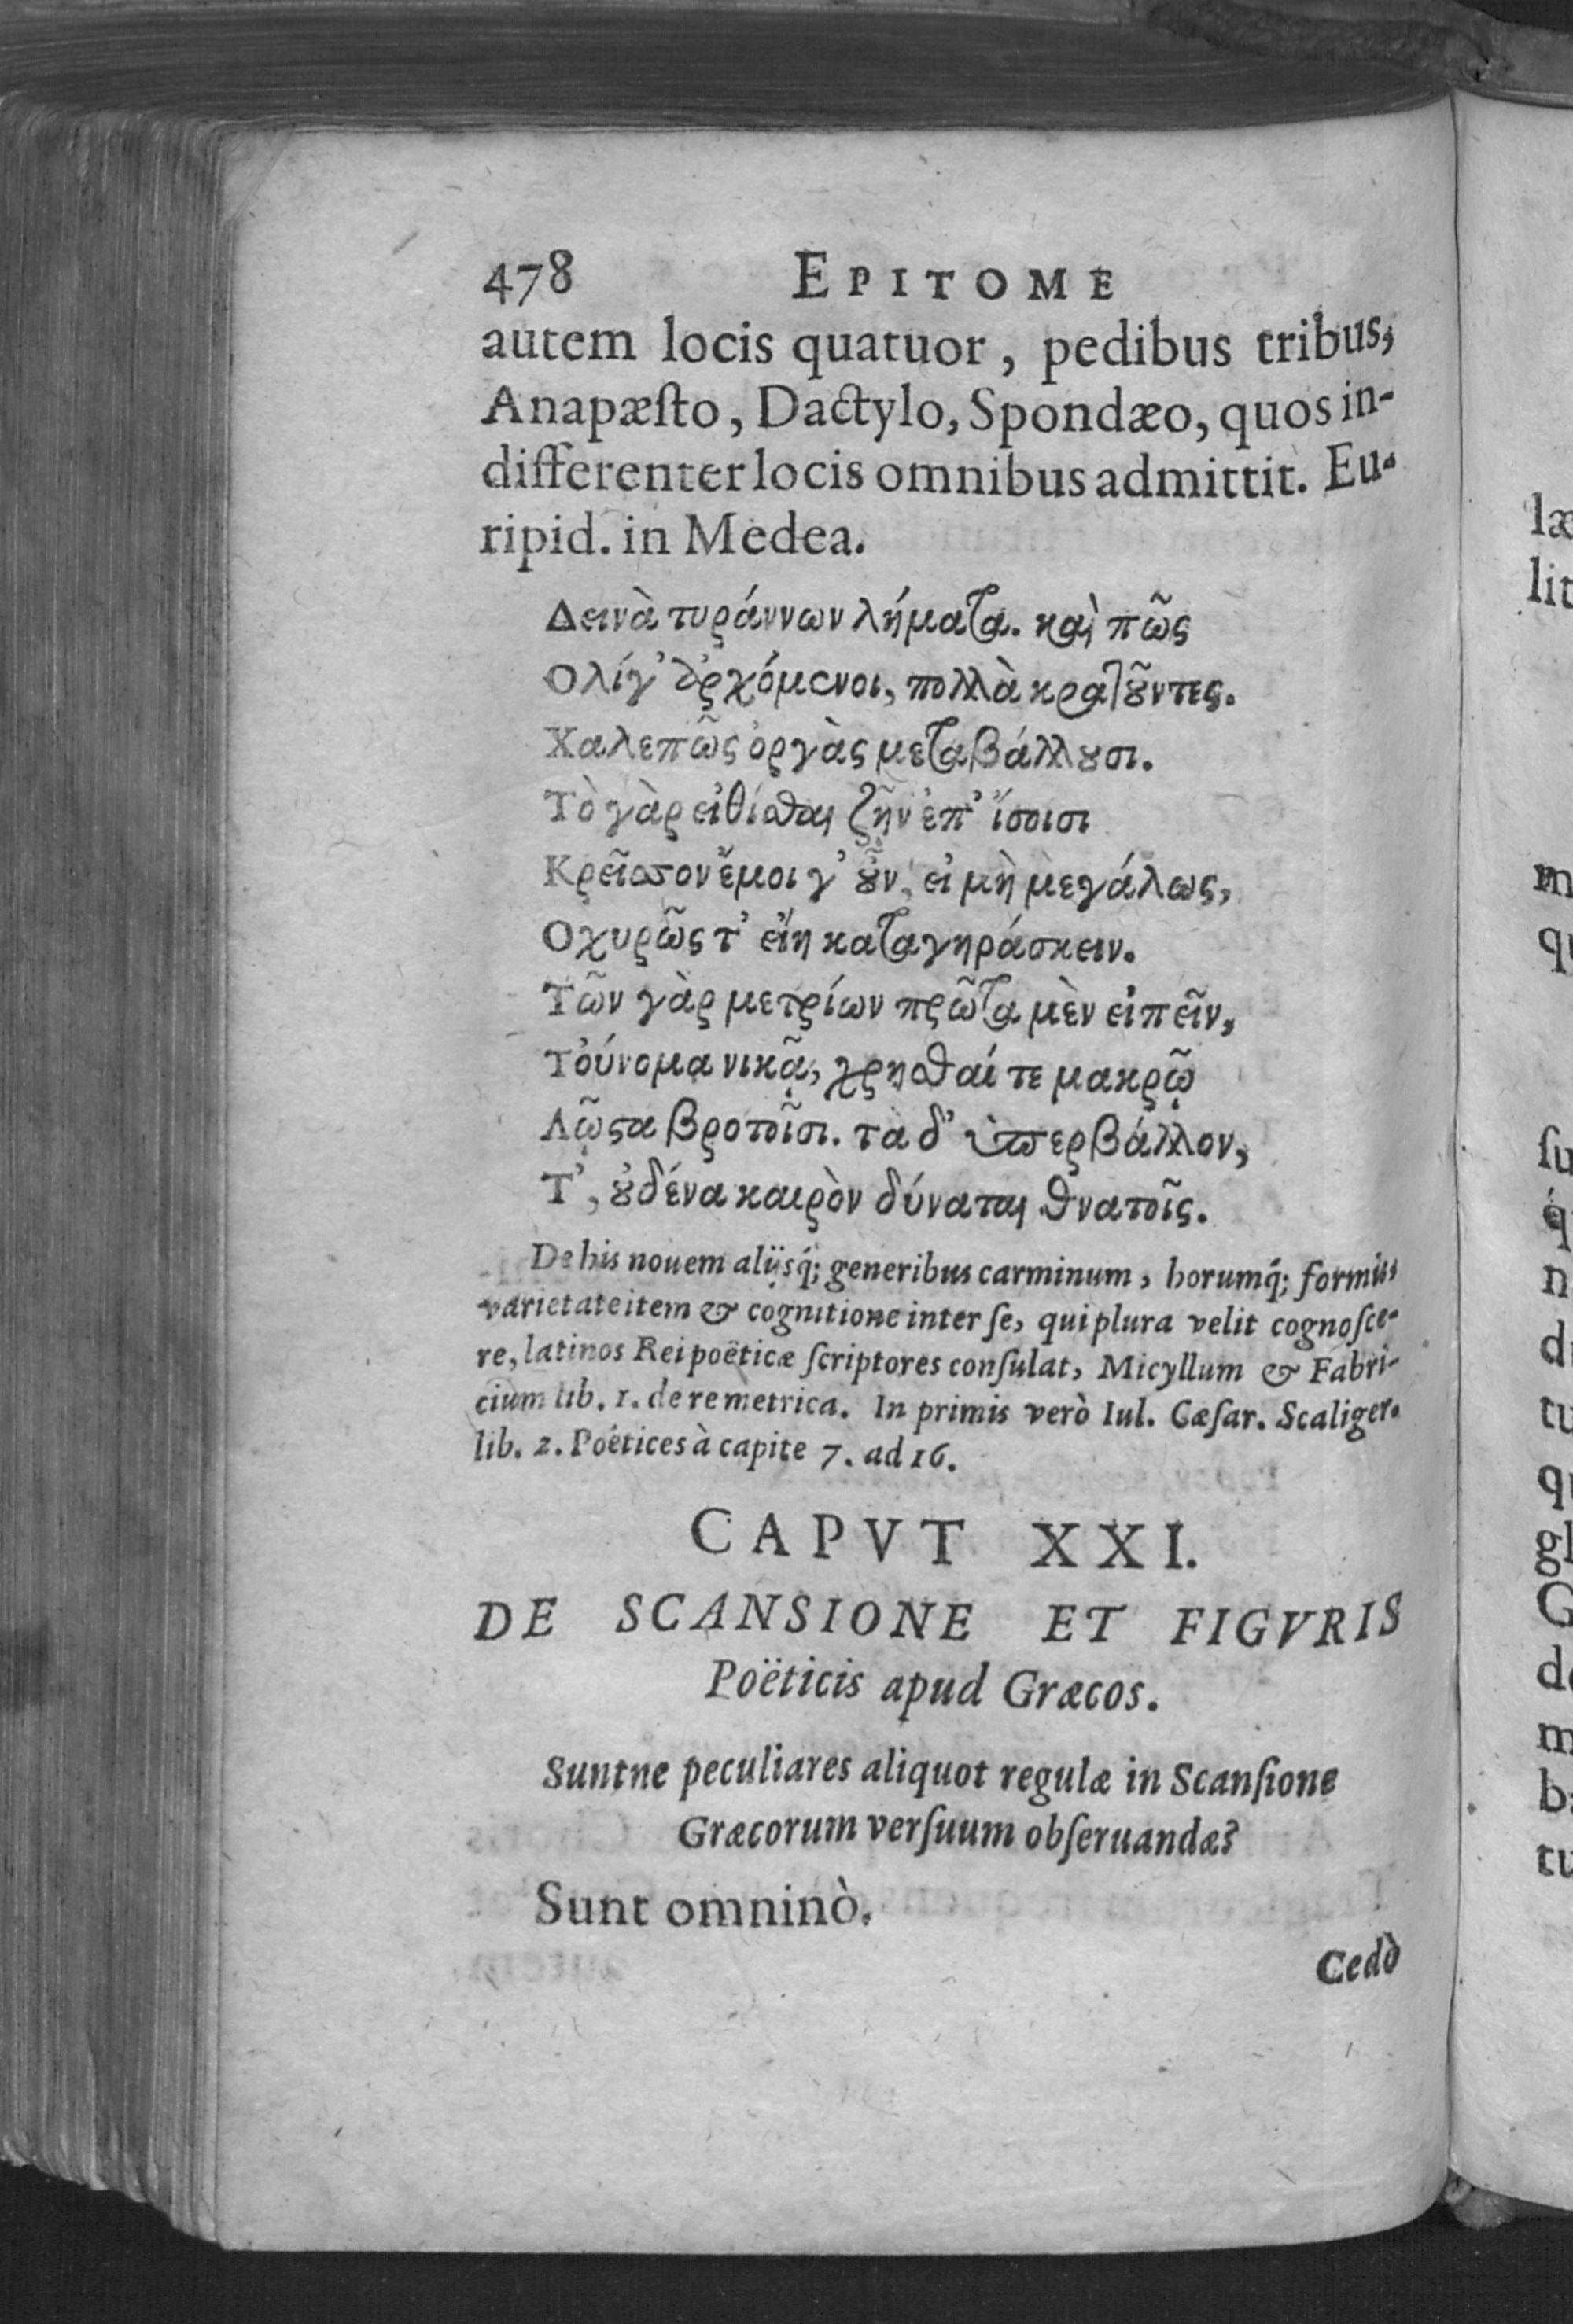 478 EPITOME
autem locis quatuor, pedibus tribus,
Anapæſto, Dactylo, Spondæo, quos in-
differenter locis omnibus admittit. Eu-
ripid. in Medea.
Δεινὰ τυράννων λήματα. καὶ πῶς
Ολίγ' ἀρχόμενοι, πολλὰ κρατοῦντες.
Χαλεπῶς ὀργὰς μεταβάλλουσι.
Τὸ γὰρ εἰθίσθαι ζῆν ἐπ' ἴσοισι
Κρεῖσσον ἔμοι γ' οὖν, εἰ μὴ μεγάλως,
Οχυρῶς τ' εἴη καταγηράσκειν.
Τῶν γὰρ μετρίων πρῶτα μὲν εἰπεῖν,
Τοὐνομα νικᾷ, χρησθαί τε μακρῷ
Λῷστα βροτοῖσι. τὰ δ' ὑπερβάλλον,
Τ', οὐδένα καιρὸν δύναται θνατοῖς.
De his nouem alijsq́; generibus carminum, horumq́; formis,
varietate item & cognitione inter ſe, qui plura velit cognoſce-
re, latinos Rei poëticæ ſcriptores conſulat, Micyllum & Fabri-
cium lib. 1. de re metrica. In primis verò Iul. Cæſar. Scaliger.
lib. 2. Poëtices à capite 7. ad 16.
CAPVT XXI.
DE SCANSIONE ET FIGVRIS
Poëticis apud Græcos.
Suntne peculiares aliquot regulæ in Scanſione
Græcorum verſuum obſeruandæ?
Sunt omninò.
Cedò
læ
lit
m
qu
ſu
q́
n
di
tu
qu
gl
G
de
m
ba
tu